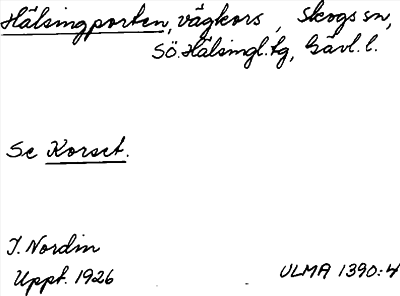 Hälsingporten, vägkors, Skogs sn,
Sö. Hälsingl. tg, Gävl. l.
Se Korset.
I. Nordin
Uppt. 1926
ULMA 1390:4